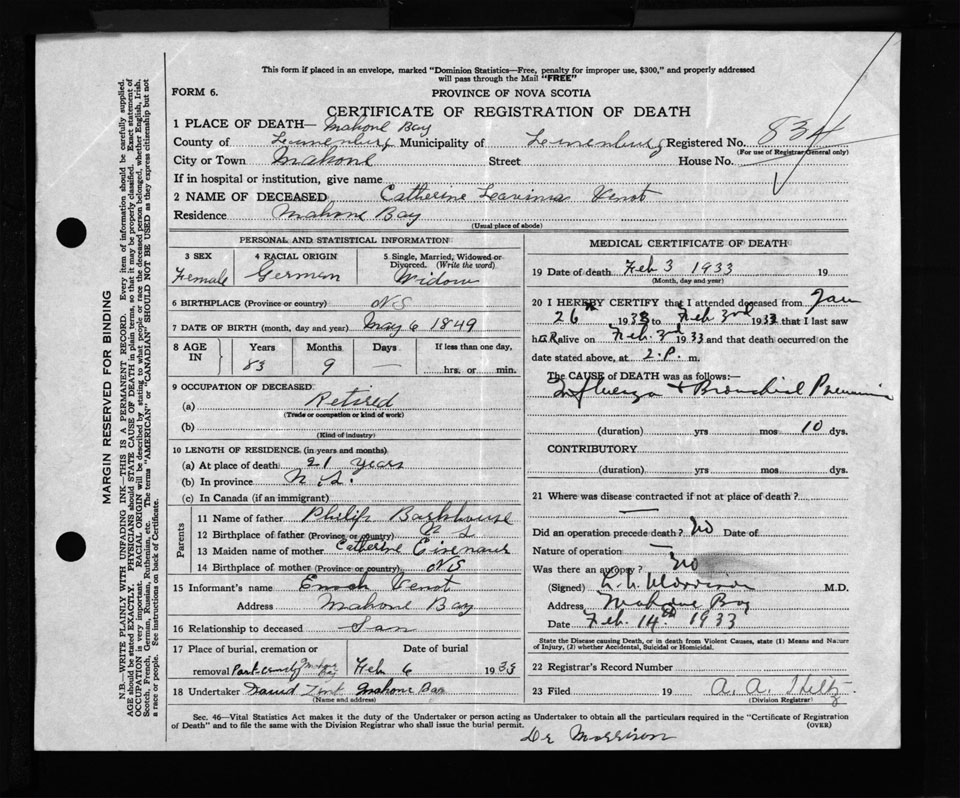 This form if placed in an envelope, marked "Dominion Statistics—Free, penalty for improper use, $300," and properly addressed
will pass through the Mail "FREE"
FORM 6.
PROVINCE OF NOVA SCOTIA
CERTIFICATE OF REGISTRATION OF DEATH
1 PLACE OF DEATH— Mahone Bay
County of Lunenburg Municipality of Lunenburg Registered No. 834
(For use of Registrar General only)
City or Town Mahone Street House No.
If in hospital or institution, give name
2 NAME OF DECEASED Catherine Veinot
Residence Mahone Bay
(Usual place of abode)
PERSONAL AND STATISTICAL INFORMATION
3 SEX 4 RACIAL ORIGIN 5 Single, Married, Widowed or
Divorced. (Write the word)
Female German Widow
6 BIRTHPLACE (Province or country) N S
7 DATE OF BIRTH (month, day and year) May 6 1849
8 AGE IN Years Months Days If less than one day,
83 9 — hrs. or min.
9 OCCUPATION OF DECEASED
(a) Retired
(Trade or occupation or kind of work)
(b)
(Kind of industry)
10 LENGTH OF RESIDENCE (in years and months)
(a) At place of death 21 years
(b) In province N. S.
(c) In Canada (if an immigrant)
Parents
11 Name of father Philip Barkhouse
12 Birthplace of father (Province or country) N S
13 Maiden name of mother Catherine Eisenaur
14 Birthplace of mother (Province or country) N S
15 Informant's name Enoch Venot
Address Mahone Bay
16 Relationship to deceased Son
17 Place of burial, cremation or Date of burial
removal Park cemty Mahone Bay Feb 6 1933
18 Undertaker David Zink Mahone Bay
(Name and address)
MEDICAL CERTIFICATE OF DEATH
19 Date of death Feb 3 1933 19
(Month, day and year)
20 I HEREBY CERTIFY that I attended deceased from Jan
26th 1933 to Feb 3rd 1933 that I last saw
h er alive on Feb. 3rd 1933 and that death occurred on the
date stated above, at 2. P. m.
The CAUSE of DEATH was as follows:—
Influenza + Bronchial Pneumonia
(duration) yrs mos 10 dys.
CONTRIBUTORY
(duration) yrs mos dys.
21 Where was disease contracted if not at place of death?
—
Did an operation precede death? No Date of
Nature of operation —
Was there an autopsy? No
(Signed) Morrison M.D.
Address Mahone Bay
Date Feb. 14th 1933
State the Disease causing Death, or in death from Violent Causes, state (1) Means and Nature
of Injury, (2) whether Accidental, Suicidal or Homicidal.
22 Registrar's Record Number
23 Filed 19 A. A.
(Division Registrar)
Sec. 46—Vital Statistics Act makes it the duty of the Undertaker or person acting as Undertaker to obtain all the particulars required in the "Certificate of Registration
of Death" and to file the same with the Division Registrar who shall issue the burial permit. (OVER)
Dr Morrison
MARGIN RESERVED FOR BINDING
N.B.—WRITE PLAINLY WITH UNFADING INK—THIS IS A PERMANENT RECORD. Every item of information should be carefully supplied.
AGE should be stated EXACTLY. PHYSICIANS should STATE CAUSE OF DEATH in plain terms, so that it may be properly classified. Exact statement of
OCCUPATION is very important. RACIAL ORIGIN will be described by stating to what people or race the deceased person belonged, whether English, Irish,
Scotch, French, German, Russian, Ruthenian, etc. The terms "AMERICAN" or "CANADIAN" SHOULD NOT BE USED as they express citizenship but not
a race or people. See instructions on back of Certificate.